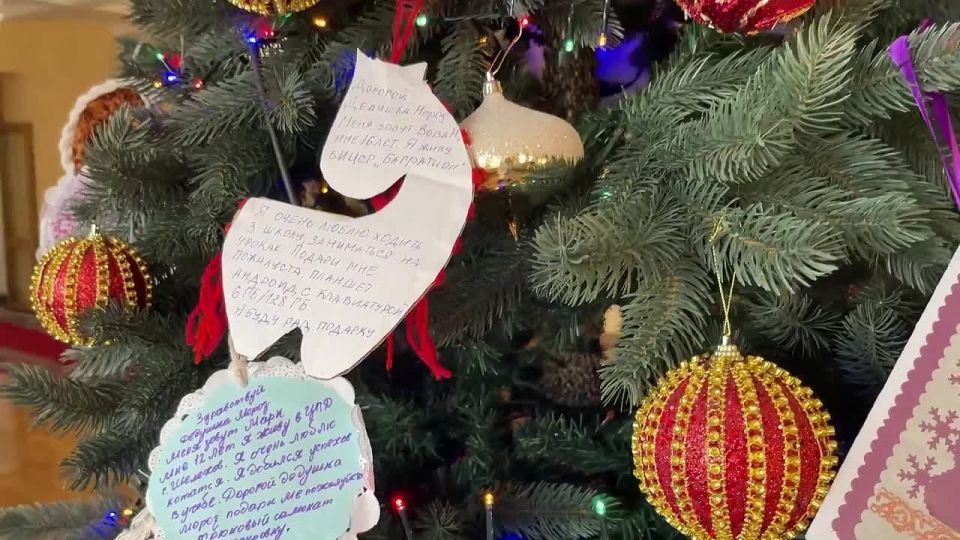 Дорогой
Дедушка Мороз
Меня зовут Вова
мне 16 лет. Я живу
в ИЦСР „Багратион"
Я очень люблю ходить
в школу, заниматься на
уроках. Подари мне
пожалуста планшет
андроид, с клавиатурой
6 ГБ/128 ГБ.
я буду рад подарку
Здравствуй
дедушка Мороз
меня зовут Марк
мне 12 лет Я живу в ЦПД
г. Шелехов. Я очень люблю
кататся. Я добился успехов
в учебе. Дорогой дедушка
мороз подари мне пожалуйста
трюковый самокат